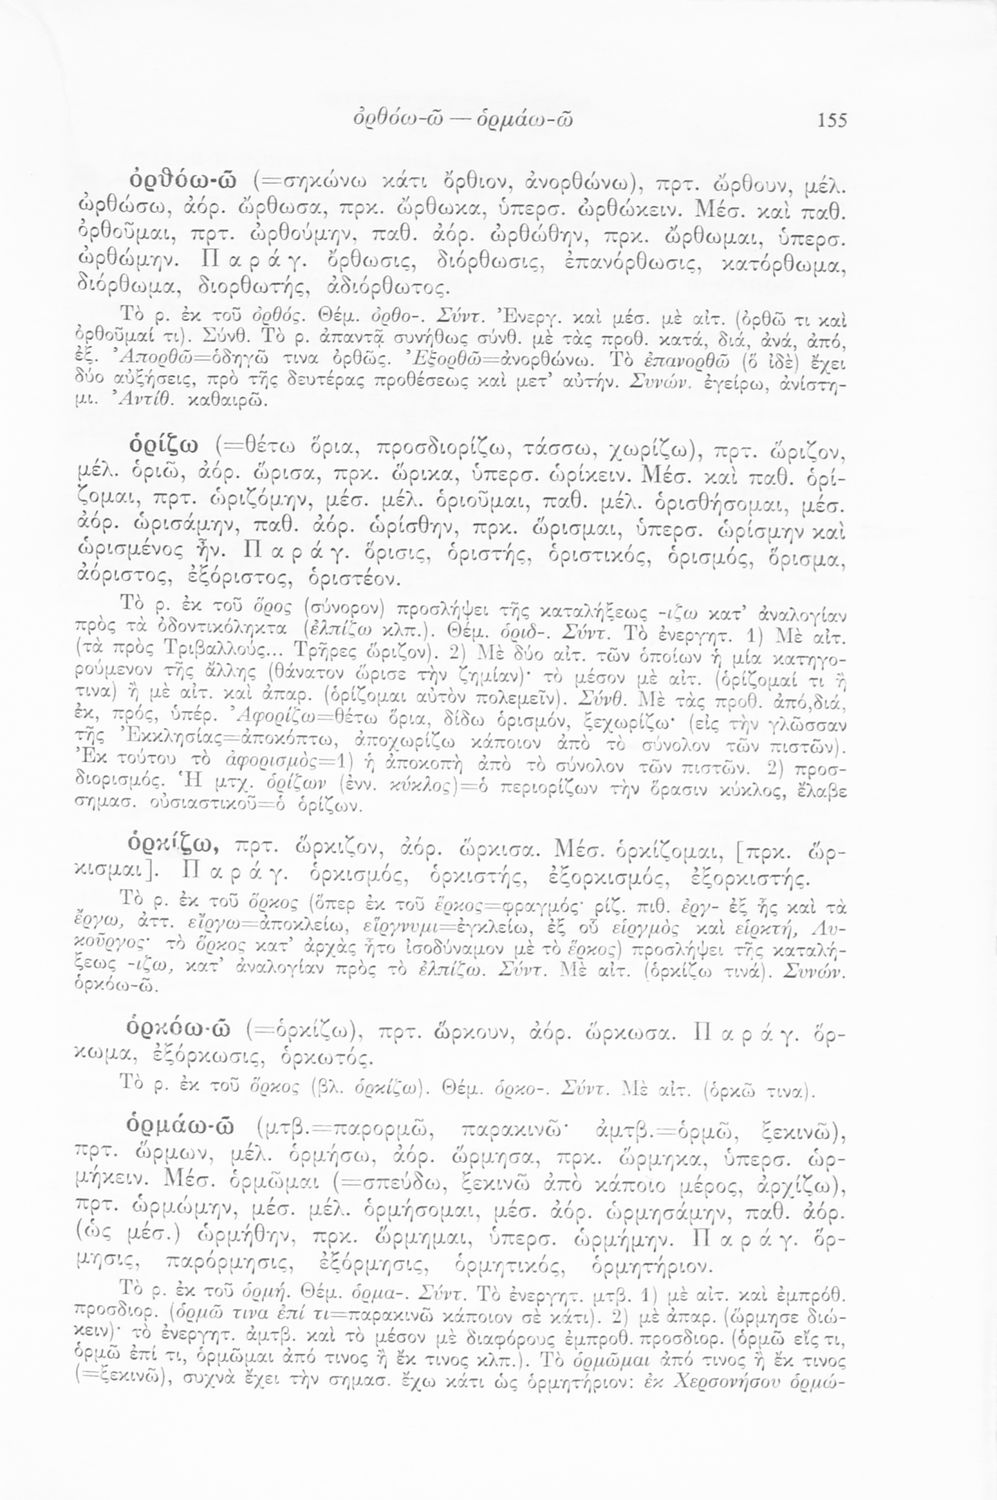 ὀρθόω-ῶ — ὁρμάω-ῶ 155
ὀρθόω-ῶ (=σηκώνω κάτι ὄρθιον, ἀνορθώνω), πρτ. ὤρθουν, μέλ.
ὠρθώσω, ἀόρ. ὤρθωσα, πρκ. ὤρθωκα, ὑπερσ. ὠρθώκειν. Μέσ. καὶ παθ.
ὀρθοῦμαι, πρτ. ὠρθούμην, παθ. ἀόρ. ὠρθώθην, πρκ. ὤρθωμαι, ὑπερσ.
ὠρθώμην. Παράγ. ὄρθωσις, διόρθωσις, ἐπανόρθωσις, κατόρθωμα,
διόρθωμα, διορθωτής, ἀδιόρθωτος.
Τὸ ρ. ἐκ τοῦ ὀρθός. Θέμ. ὀρθο-. Σύντ. Ἐνεργ. καὶ μέσ. μὲ αἰτ. (ὀρθῶ τι καὶ
ὀρθοῦμαί τι). Σύνθ. Τὸ ρ. ἀπαντᾷ συνήθως σύνθ. μὲ τὰς προθ. κατά, διά, ἀνά, ἀπό,
ἐξ. Ἀπορθῶ=ὁδηγῶ τινα ὀρθῶς. Ἐξορθῶ=ἀνορθώνω. Τὸ ἐπανορθῶ (ὃ ἰδὲ) ἔχει
δύο αὐξήσεις, πρὸ τῆς δευτέρας προθέσεως καὶ μετ’ αὐτήν. Συνών. ἐγείρω, ἀνίστη-
μι. Ἀντίθ. καθαιρῶ.
ὁρίζω (=θέτω ὅρια, προσδιορίζω, τάσσω, χωρίζω), πρτ. ὥριζον,
μέλ. ὁριῶ, ἀόρ. ὥρισα, πρκ. ὥρικα, ὑπερσ. ὡρίκειν. Μέσ. καὶ παθ. ὁρί-
ζομαι, πρτ. ὡριζόμην, μέσ. μέλ. ὁριοῦμαι, παθ. μέλ. ὁρισθήσομαι, μέσ.
ἀόρ. ὡρισάμην, παθ. ἀόρ. ὡρίσθην, πρκ. ὥρισμαι, ὑπερσ. ὡρίσμην καὶ
ὡρισμένος ἦν. Παράγ. ὅρισις, ὁριστής, ὁριστικός, ὁρισμός, ὅρισμα,
ἀόριστος, ἐξόριστος, ὁριστέον.
Τὸ ρ. ἐκ τοῦ ὅρος (σύνορον) προσλήψει τῆς καταλήξεως -ιζω κατ’ ἀναλογίαν
πρὸς τὰ ὀδοντικόληκτα (ἐλπίζω κλπ.). Θέμ. ὁριδ-. Σύντ. Τὸ ἐνεργητ. 1) Μὲ αἰτ.
(τὰ πρὸς Τριβαλλούς... Τρῆρες ὥριζον). 2) Μὲ δύο αἰτ. τῶν ὁποίων ἡ μία κατηγο-
ρούμενον τῆς ἄλλης (θάνατον ὥρισε τὴν ζημίαν)· τὸ μέσον μὲ αἰτ. (ὁρίζομαί τι ἤ
τινα) ἢ μὲ αἰτ. καὶ ἀπαρ. (ὁρίζομαι αὐτὸν πολεμεῖν). Σύνθ. Μὲ τὰς προθ. ἀπό,διά,
ἐκ, πρός, ὑπέρ. Ἀφορίζω=θέτω ὅρια, δίδω ὁρισμόν, ξεχωρίζω· (εἰς τὴν γλῶσσαν
τῆς Ἐκκλησίας=ἀποκόπτω, ἀποχωρίζω κάποιον ἀπὸ τὸ σύνολον τῶν πιστῶν).
Ἐκ τούτου τὸ ἀφορισμὸς=1) ἡ ἀποκοπὴ ἀπὸ τὸ σύνολον τῶν πιστῶν. 2) προσ-
διορισμός. Ἡ μτχ. ὁρίζων (ἐνν. κύκλος)=ὁ περιορίζων τὴν ὅρασιν κύκλος, ἔλαβε
σημασ. οὐσιαστικοῦ=ὁ ὁρίζων.
ὁρκίζω, πρτ. ὥρκιζον, ἀόρ. ὥρκισα. Μέσ. ὁρκίζομαι, [πρκ. ὥρ-
κισμαι]. Παράγ. ὁρκισμός, ὁρκιστής, ἐξορκισμός, ἐξορκιστής.
Τὸ ρ. ἐκ τοῦ ὅρκος (ὅπερ ἐκ τοῦ ἕρκος=φραγμός· ρίζ. πιθ. ἑργ- ἐξ ἧς καὶ τὰ
ἔργω, ἀττ. εἴργω=ἀποκλείω, εἴργνυμι=ἐγκλείω, ἐξ οὗ εἱργμὸς καὶ εἱρκτή, Λυ-
κοῦργος· τὸ ὅρκος κατ’ ἀρχὰς ἦτο ἰσοδύναμον μὲ τὸ ἕρκος) προσλήψει τῆς καταλή-
ξεως -ιζω, κατ’ ἀναλογίαν πρὸς τὸ ἐλπίζω. Σύντ. Μὲ αἰτ. (ὁρκίζω τινά). Συνών.
ὁρκόω-ῶ.
ὁρκόω-ῶ (=ὁρκίζω), πρτ. ὥρκουν, ἀόρ. ὥρκωσα. Παράγ. ὅρ-
κωμα, ἐξόρκωσις, ὁρκωτός.
Τὸ ρ. ἐκ τοῦ ὅρκος (βλ. ὁρκίζω). Θέμ. ὁρκο-. Σύντ. Μὲ αἰτ. (ὁρκῶ τινα).
ὁρμάω-ῶ (μτβ.=παρορμῶ, παρακινῶ· ἀμτβ.=ὁρμῶ, ξεκινῶ),
πρτ. ὥρμων, μέλ. ὁρμήσω, ἀόρ. ὥρμησα, πρκ. ὥρμηκα, ὑπερσ. ὡρ-
μήκειν. Μέσ. ὁρμῶμαι (=σπεύδω, ξεκινῶ ἀπὸ κάποιο μέρος, ἀρχίζω),
πρτ. ὡρμώμην, μέσ. μέλ. ὁρμήσομαι, μέσ. ἀόρ. ὡρμησάμην, παθ. ἀόρ.
(ὡς μέσ.) ὡρμήθην, πρκ. ὥρμημαι, ὑπερσ. ὡρμήμην. Παράγ. ὅρ-
μησις, παρόρμησις, ἐξόρμησις, ὁρμητικός, ὁρμητήριον.
Τὸ ρ. ἐκ τοῦ ὁρμή. Θέμ. ὁρμα-. Σύντ. Τὸ ἐνεργητ. μτβ. 1) μὲ αἰτ. καὶ ἐμπρόθ.
προσδιορ. (ὁρμῶ τινα ἐπί τι=παρακινῶ κάποιον σὲ κάτι). 2) μὲ ἀπαρ. (ὥρμησε διώ-
κειν)· τὸ ἐνεργητ. ἀμτβ. καὶ τὸ μέσον μὲ διαφόρους ἐμπροθ. προσδιορ. (ὁρμῶ εἴς τι,
ὁρμῶ ἐπί τι, ὁρμῶμαι ἀπό τινος ἢ ἔκ τινος κλπ.). Τὸ ὁρμῶμαι ἀπό τινος ἢ ἔκ τινος
(=ξεκινῶ), συχνὰ ἔχει τὴν σημασ. ἔχω κάτι ὡς ὁρμητήριον: ἐκ Χερσονήσου ὁρμώ-